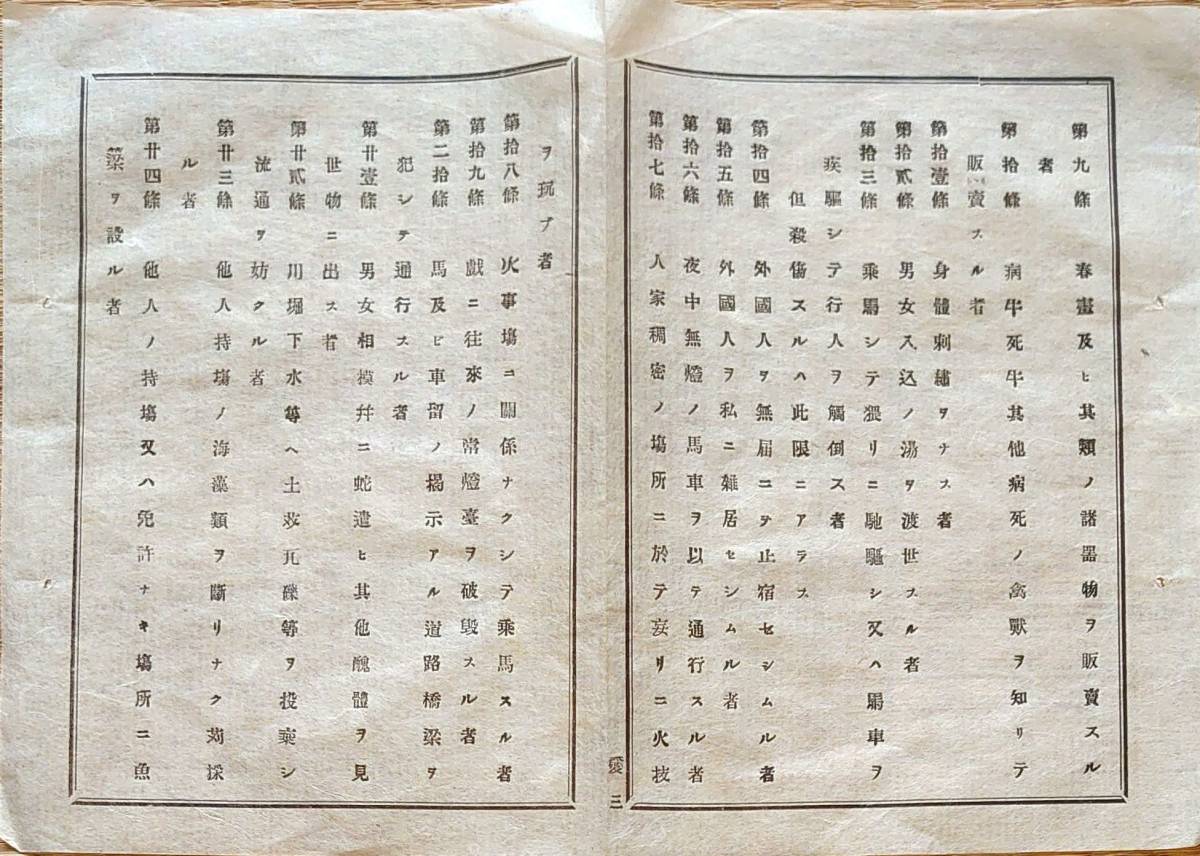 第九條　春畫及ヒ其類ノ諸器物ヲ販賣スル
者
第拾條　病牛死牛其他病死ノ禽獸ヲ知リテ
販賣スル者
第拾壹條　身體刺繡ヲナス者
第拾貳條　男女入込ノ湯ヲ渡世スル者
第拾三條　乘馬シテ猥リニ馳驅シ又ハ馬車ヲ
疾驅シテ行人ヲ觸倒ス者
但殺傷スルハ此限ニアラス
第拾四條　外國人ヲ無屆ニテ止宿セシムル者
第拾五條　外國人ヲ私ニ雜居セシムル者
第拾六條　夜中無燈ノ馬車ヲ以テ通行スル者
第拾七條　人家稠密ノ塲所ニ於テ妄リニ火技
愛　三
ヲ玩フ者
第拾八條　火事塲ニ關係ナクシテ乘馬スル者
第拾九條　戲ニ往來ノ常燈臺ヲ破毀スル者
第二拾條　馬及ヒ車留ノ揭示アル道路橋梁ヲ
犯シテ通行スル者
第廿壹條　男女相摸幷ニ蛇遣ヒ其他醜體ヲ見
世物ニ出ス者
第廿貳條　川堀下水等ヘ土芥瓦礫等ヲ投棄シ
流通ヲ妨クル者
第廿三條　他人持塲ノ海藻類ヲ斷リナク苅採
ル者
第廿四條　他人ノ持塲又ハ免許ナキ塲所ニ魚
簗ヲ設ル者